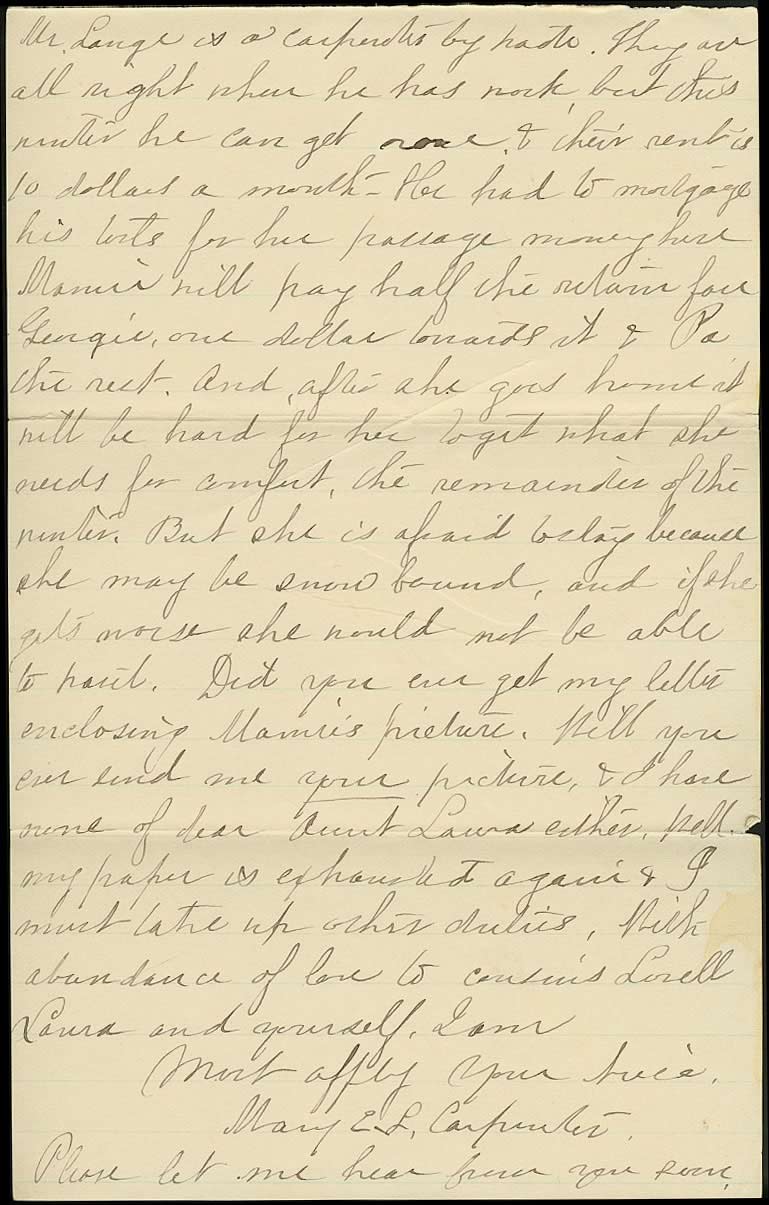 Mr. Lange is a carpenter by trade. They are
all right when he has work, but this
winter he can get none, & their rent is
10 dollars a month – He had to mortgage
his lots for her passage money here
Mamie will pay half the return fare
Georgie, one dollar towards it & Pa
the rest. And, after she goes home it
will be hard for her to get what she
needs for comfort, the remainder of the
winter. But she is afraid to stay because
she may be snow bound, and if she
gets worse she would not be able
to travel. Did you ever get my letter
enclosing Mamie's picture. Will you
ever send me your picture, & I have
none of dear Aunt Laura either. Well
my paper is exhausted again & I
must take up other duties, With
abundance of love to cousins Lovell
Laura and yourself, I am
Most affly your niece.
Mary E. L. Carpenter.
Please let me hear from you soon.